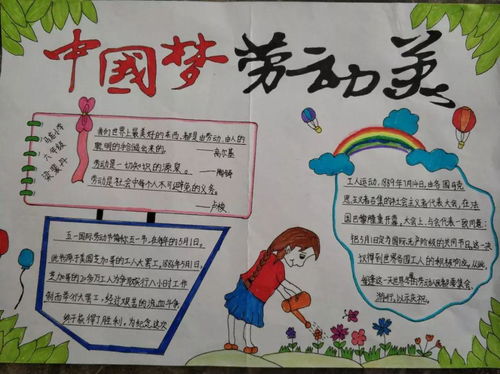 中国梦 劳动美
六年级
我们世界上最美好的东西,都是由劳动、由人的
聪明的手创造出来的。
——高尔基
劳动是一切知识的源泉。
——陶铸
劳动是社会中每个人不可避免的义务。
——卢梭
五一国际劳动节简称五一节,在每年的5月1日。
此节源于美国芝加哥的工人大罢工,1886年5月1日,
芝加哥的20多万工人为争取实行八小时工作
制而举行大罢工,经过艰苦的流血斗争
终于赢得了胜利。为纪念这次
工人运动,1889年7月14日,由各国马克
思主义者召集的社会主义者代表大会,在法
国巴黎隆重开幕。大会上,与会代表一致同意:
把5月1日定为国际无产阶级的共同节日。这一决
议得到世界各国工人的积极响应。从此,
每逢这一天世界各国的劳动人民都要集会、
游行,以示庆祝。